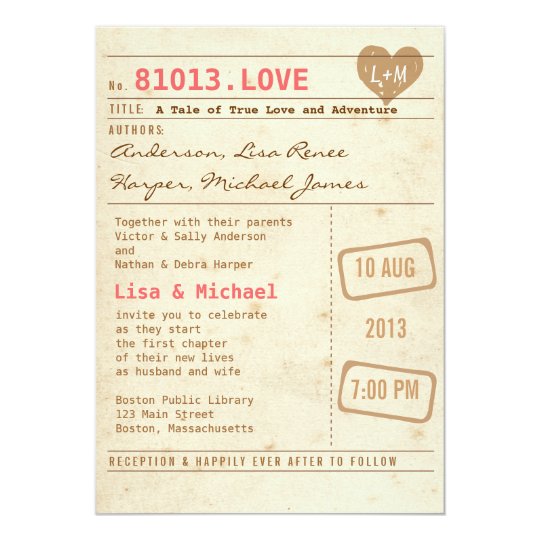 L+M
No. 81013.LOVE
TITLE: A Tale of True Love and Adventure
AUTHORS:
Anderson, Lisa Renee
Harper, Michael James
Together with their parents
Victor & Sally Anderson
and
Nathan & Debra Harper
Lisa & Michael
invite you to celebrate
as they start
the first chapter
of their new lives
as husband and wife
Boston Public Library
123 Main Street
Boston, Massachusetts
10 AUG
2013
7:00 PM
RECEPTION & HAPPILY EVER AFTER TO FOLLOW